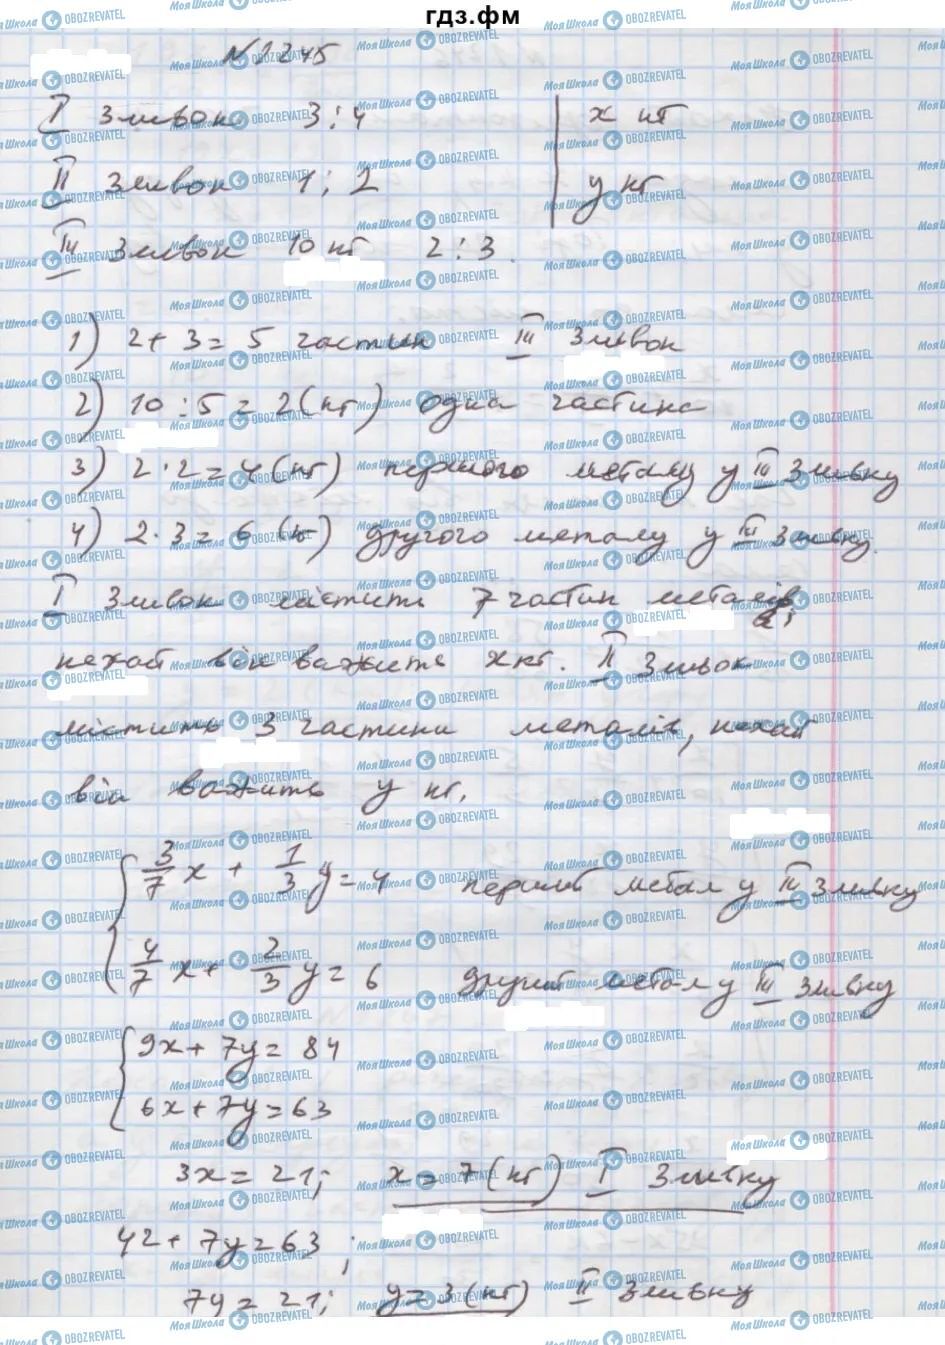 гдз.фм
№ 1245
I Зливок 3 : 4 x кг
II Зливок 1 : 2 y кг
III Зливок 10 кг 2 : 3.
1) 2 + 3 = 5 частин III Зливок
2) 10 : 5 = 2 (кг) одна частина
3) 2 · 2 = 4 (кг) першого металу у III Зливку
4) 2 · 3 = 6 (кг) другого металу у III Зливку.
I Зливок містить 7 частин металів
нехай він важить x кг. II Зливок
містить 3 частини металів, нехай
він важить y кг.
3/7 x + 1/3 y = 4 перший метал у III Зливку
4/7 x + 2/3 y = 6 другий метал у III Зливку
9x + 7y = 84
6x + 7y = 63
3x = 21; x = 7 (кг) I Зливку
42 + 7y = 63;
7y = 21; y = 3 (кг) II Зливку